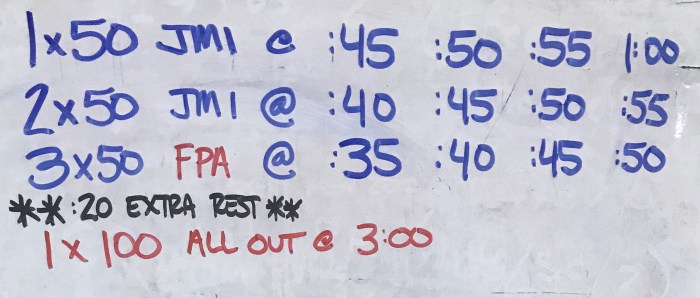 1x50 JMI @ :45 :50 :55 1:00
2x50 JMI @ :40 :45 :50 :55
3x50 FPA @ :35 :40 :45 :50
**:20 EXTRA REST**
1x100 ALL OUT @ 3:00